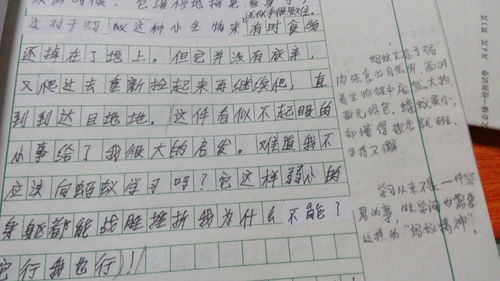 这对于蚂蚁这种小生物来
有时食物
还掉在了地上。但它并没有放弃,
又爬过去重新拉起来再继续爬,直
到到达目地地。这件看似不起眼的
小事给了我很大的启发。难道我不
应该向蚂蚁学习吗?它这样弱小的
身躯都能战胜挫折我为什么不能?
它行我也行)!
蚂蚁生存于弱
肉强食的自然界,面对
着生物链中庞然大物
面无惧色,蚂蚁虽小,
却懂得
坚持不懈
学习从来不是一件容
易的事,做学问也需要
这样的“蚂蚁精神”